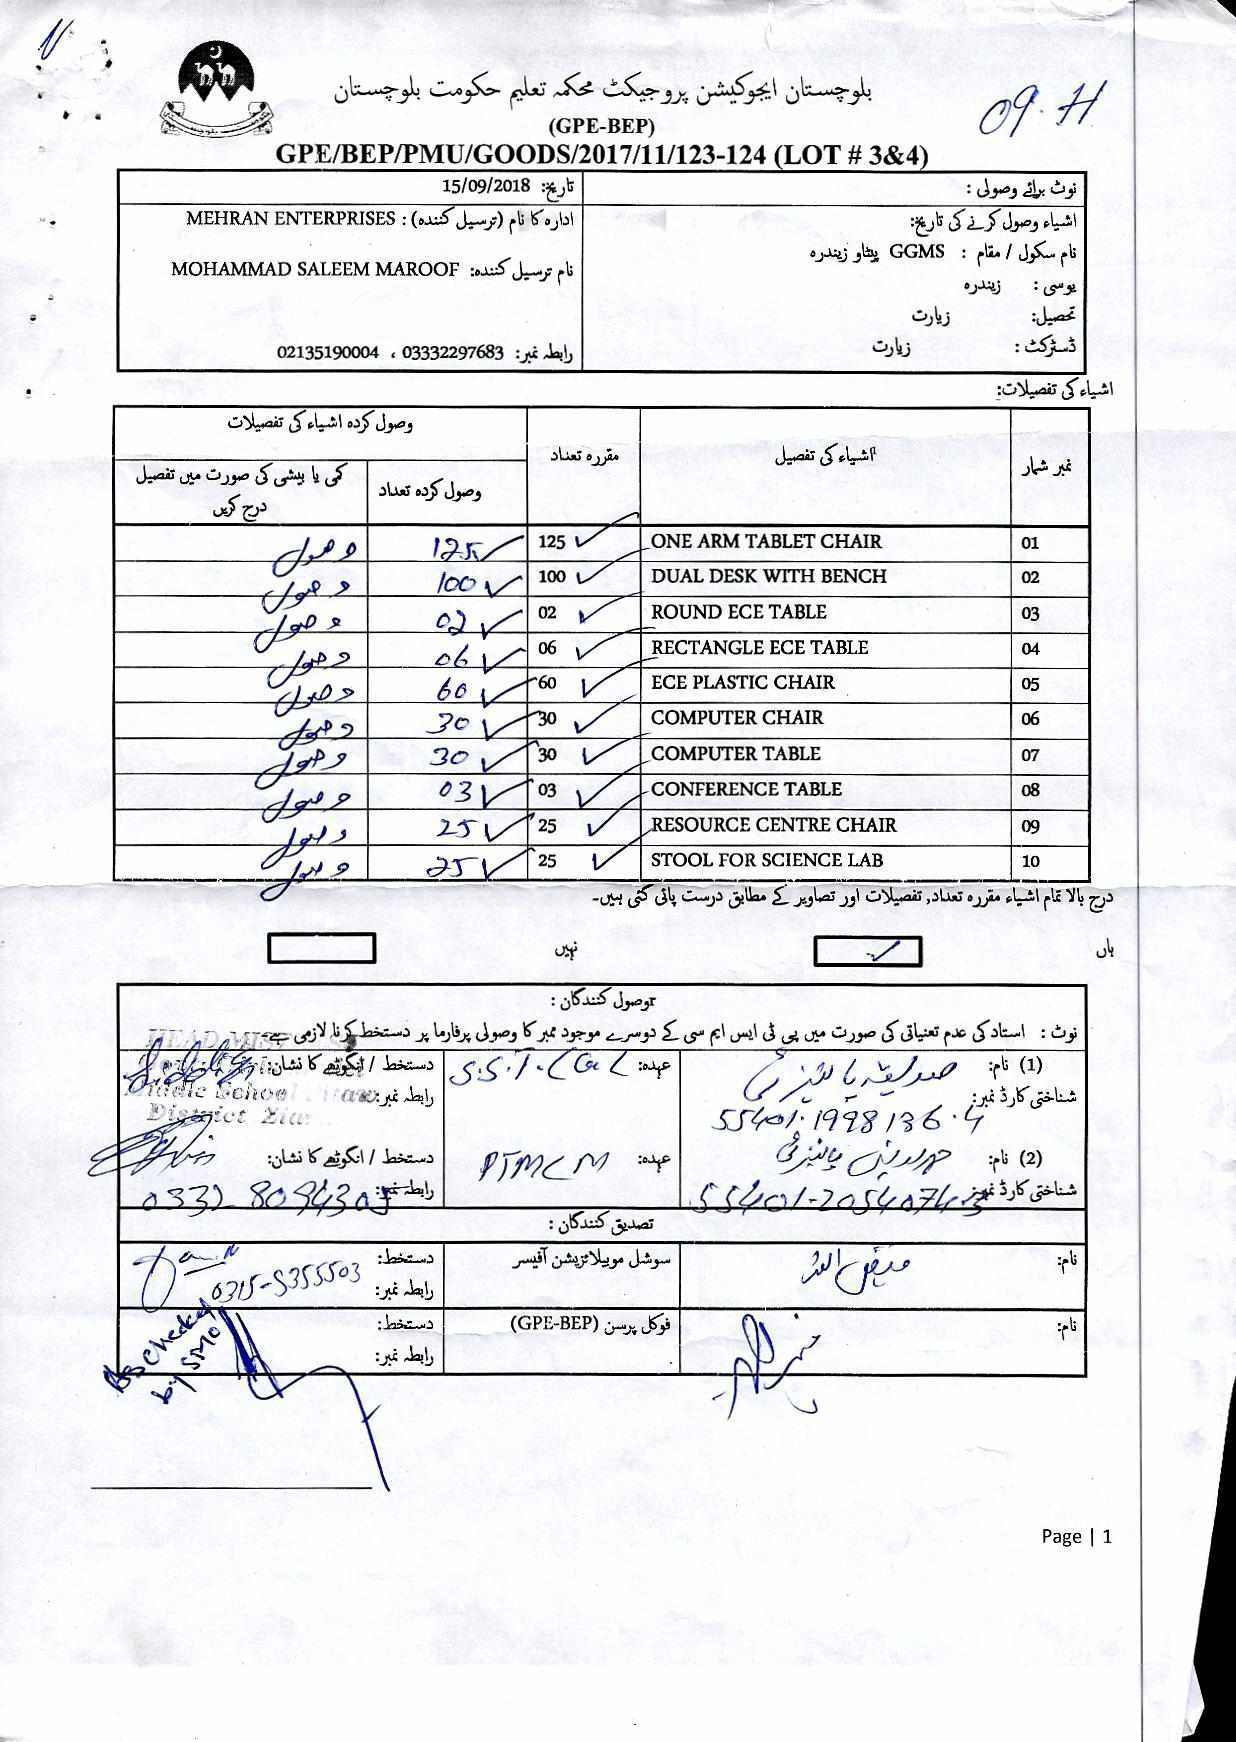 09.H
بلوچستان ایجوکیشن پروجیکٹ محکمہ تعلیم حکومت بلوچستان
(GPE-BEP)
GPE/BEP/PMU/GOODS/2017/11/123-124 (LOT # 3&4)
نوٹ برائے وصولی :
تاریخ: 15/09/2018
اشیاء وصول کرنے کی تاریخ:
ادارہ کا نام (ترسیل کنندہ) : MEHRAN ENTERPRISES
نام سکول / مقام : GGMS پیٹاو زیندرہ
نام ترسیل کنندہ: MOHAMMAD SALEEM MAROOF
یوسی : زیندرہ
تحصیل: زیارت
ڈسٹرکٹ : زیارت
رابطہ نمبر: 03332297683 ، 02135190004
اشیاء کی تفصیلات:
نمبر شمار اشیاء کی تفصیل مقررہ تعداد وصول کردہ اشیاء کی تفصیلات
وصول کردہ تعداد کمی یا بیشی کی صورت میں تفصیل درج کریں
01 ONE ARM TABLET CHAIR 125 125 وصول
02 DUAL DESK WITH BENCH 100 100 وصول
03 ROUND ECE TABLE 02 02 وصول
04 RECTANGLE ECE TABLE 06 06 وصول
05 ECE PLASTIC CHAIR 60 60 وصول
06 COMPUTER CHAIR 30 30 وصول
07 COMPUTER TABLE 30 30 وصول
08 CONFERENCE TABLE 03 03 وصول
09 RESOURCE CENTRE CHAIR 25 25 وصول
10 STOOL FOR SCIENCE LAB 25 25 وصول
درج بالا تمام اشیاء مقررہ تعداد, تفصیلات اور تصاویر کے مطابق درست پائی گئی ہیں۔
ہاں
نہیں
وصول کنندگان :
نوٹ : استاد کی عدم تعنیاتی کی صورت میں پی ٹی ایس ایم سی کے دوسرے موجود ممبر کا وصولی پرفارما پر دستخط کرنا لازمی ہے۔
(1) نام: صدیقہ پانیزئی عہدہ: S.S.T. دستخط / انگوٹھے کا نشان:
شناختی کارڈ نمبر: 55401-1998136-4 رابطہ نمبر:
Middle School
District Ziarat
(2) نام: عہدہ: PTMCM دستخط / انگوٹھے کا نشان:
شناختی کارڈ نمبر: 55401-2054074-3 رابطہ نمبر: 0332-8094305
تصدیق کنندگان :
نام: سوشل موبیلائزیشن آفیسر دستخط:
رابطہ نمبر: 0315-8355503
نام: فوکل پرسن (GPE-BEP) دستخط:
رابطہ نمبر:
As checked
by SMO
Page | 1